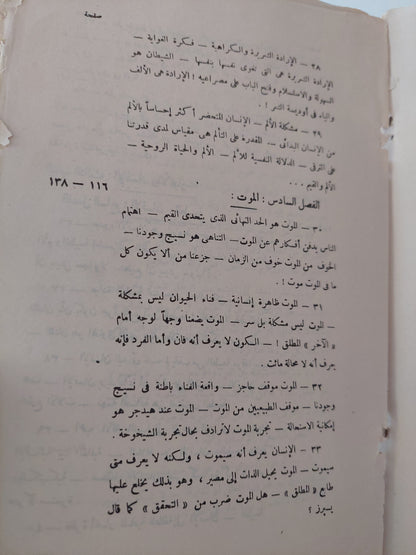 صفحة
٢٨ — الإرادة الشريرة والكراهية — فكرة الغواية —
الإرادة الشريرة هى التى تغوى نفسها بنفسها — الشيطان هو
السهولة والاستسلام وفتح الباب على مصراعيه ! الإرادة هى الألف
والياء فى أوديسة الشر ! .
٢٩ — مشكلة الألم — الإنسان المتحضر أكثر إحساساً بالألم
من الإنسان البدائى — المقدرة على التألم هى مقياس لمدى قدرتنا
على الترقى — الدلالة النفسية للألم — الألم والحياة الروحية —
الألم والقيم . . .
الفصل السادس : الموت : ١١٦ — ١٣٨
٣٠ — الموت هو الحد النهائى الذى يتحدى القيم — اهتمام
الناس بدفن أفكارهم عن الموت — التناهى هو نسيج وجودنا —
الخوف من الموت خوف من الزمان — جزعنا من ألا يكون كل
ما فى الموت موت ! .
٣١ — الموت ظاهرة إنسانية — فناء الحيوان ليس بمشكلة
— الموت ليس مشكلة بل سر — الموت يضعنا وجهاً لوجه أمام
« الآخر » المطلق ! — الكون لا يعرف أنه فان وأما الفرد فإنه
يعرف أنه لا محالة مائت .
٣٢ — الموت موقف حاجز — واقعة الفناء باطنة فى نسيج
وجودنا — موقف الطبيعيين من الموت — الموت عند هيدجر هو
إمكانية الاستحالة — تجربة الموت لا ترادف بحال تجربة الشيخوخة .
٣٣ — الإنسان يعرف أنه سيموت ، ولكنه لا يعرف متى
سيموت — الموت يحيل الذات إلى مصير ، وهو بذلك يخلع عليها
طابع « المطلق » — هل الموت ضرب من « التحقق » كما قال
يسپرز ؟